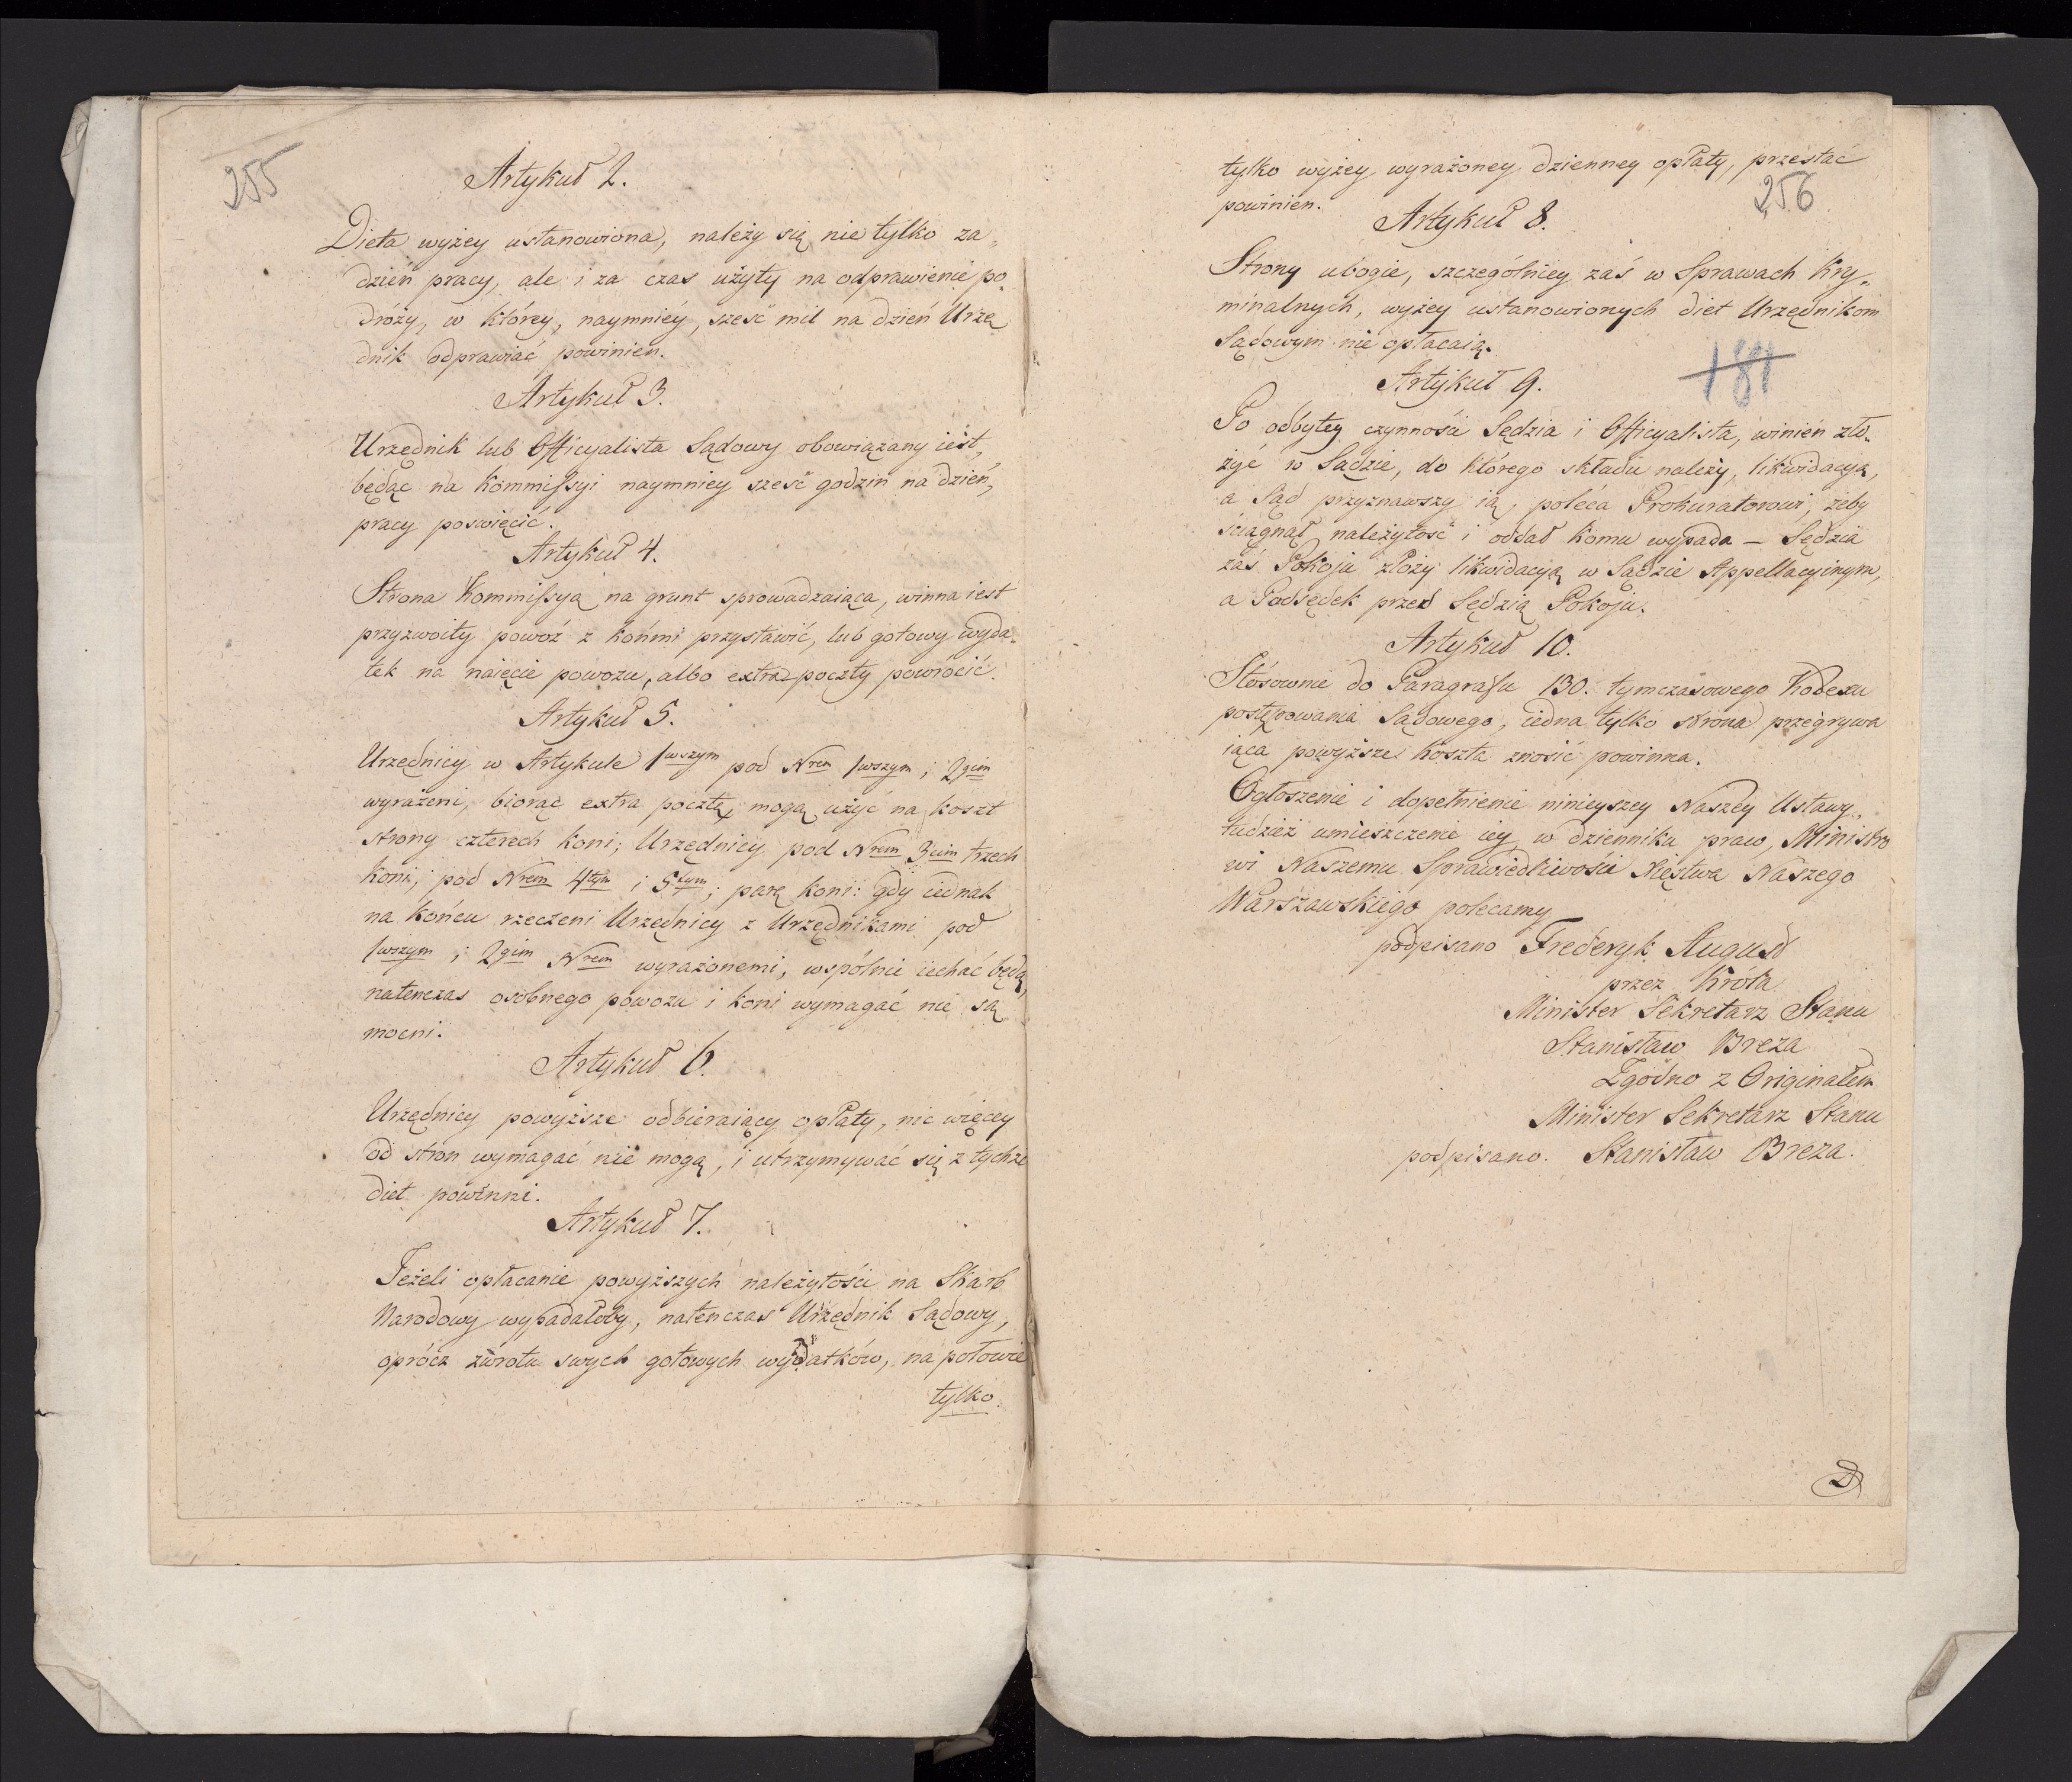 255
Artykuł 2.
Dieta wyżey ustanowiona, należy się nie tylko za
dzień pracy, ale i za czas użyty na odprawienie po„
dróży, w którey, naymniéy, sześć mil na dzień Urzę
dnik odprawiać powinien.
Artykuł 3.
Urzędnik lub Officyalista Sądowy obowiązany iést,
będąc na Kommissyi naymniey sześć godzin na dzień,
pracy poswięcić.
Artykuł 4.
Strona Kommissyą na grunt sprowadzaiąca, winna iest
przyzwoity powóz z końmi przystawić, lub gotowy wyda„
tek na naięcie powozu, albo extra poczty powrócić.
Artykuł 5.
Urzędnicy w Artykule 1wszym pod Nrem 1wszym i 2gim
wyrażeni, biorąc extra pocztę, mogą użyć na koszt
strony czterech koni; Urzędnicy pod Nrem 3cim trzech
koni; pod Nrem 4tym i 5tym; parę koni: gdy iednak
na końcu rzeczeni Urzędnicy z Urzędnikami pod
1wszym i 2gim Nrem wyrażonemi, wspólnie iechać będą,
natenczas osobnego powozu i koni wymagać nie są
mocni.
Artykuł 6.
Urzędnicy powyższe odbieraiący opłaty, nic więcey
od stron wymagać nie mogą, i utrzymywać się z tychże
diet powinni.
Artykuł 7.
Jeżeli opłacanie powyższych należytości na Skarb
Narodowy wypadałoby, natenczas Urzędnik Sądowy,
oprócz zwrotu swych gotowych wydatków, na połowie
tylko
tylko wyżey wyrażoney dzienney opłaty, przestać
powinien.
256
Artykuł 8.
Strony ubogie, szczególniey zaś w Sprawach Kry„
minalnych, wyżey ustanowionych diet Urzędnikom
Sądowym nie opłacaią.
181
Artykuł 9.
Po odbytey czynności Sędzia i Officyalista, winień zło„
żyć w Sądzie, do którego składu należy, likwidacyą,
a Sąd przyznawszy ią, poleca Prokuratorowi, żeby
ściągnął należytość i oddał komu wypada – Sędzia
zaś Pokoju złoży likwidacyą w Sądzie Appellacyinym,
a Podsędek przed Sędzią Pokoju.
Artykuł 10.
Stósownie do Paragrafu 130. tymczasowego Kodexu
postępowania Sądowego, iedna tylko strona przegrywa
iąca powyższe koszta znosić powinna.
Ogłoszenie i dopełnienie ninieyszey Naszey Ustawy,
tudzież umieszczenie iey w dzienniku praw, Ministro
wi Naszemu Sprawiedliwości Xięstwa Naszego
Warszawskiego polecamy
podpisano Frederyk August
przez Króla
Minister Sekretarz Stanu
Stanisław Breza
Zgodno z Originałem
Minister Sekretarz Stanu
podpisano. Stanisław Breza.